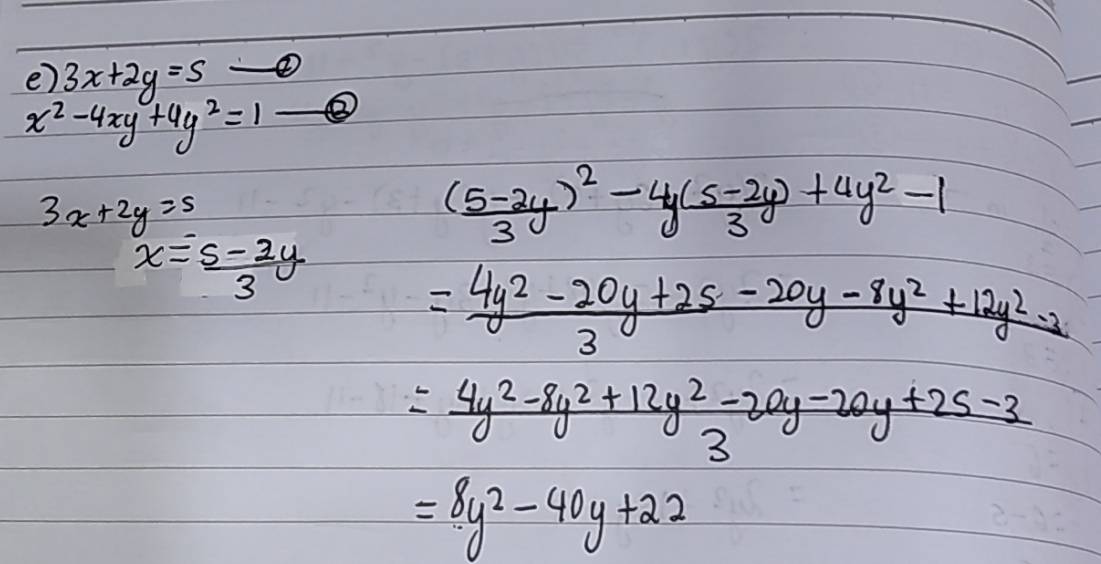 e) 3x+2y=5 —①
x²-4xy+4y²=1 —②
3x+2y=5
x=(5-2y)/3
((5-2y)/3)² - 4y((5-2y)/3) + 4y² - 1
= (4y² - 20y + 25 - 20y - 8y² + 12y² - 3)/3
= (4y² - 8y² + 12y² - 20y - 20y + 25 - 3)/3
= 8y² - 40y + 22